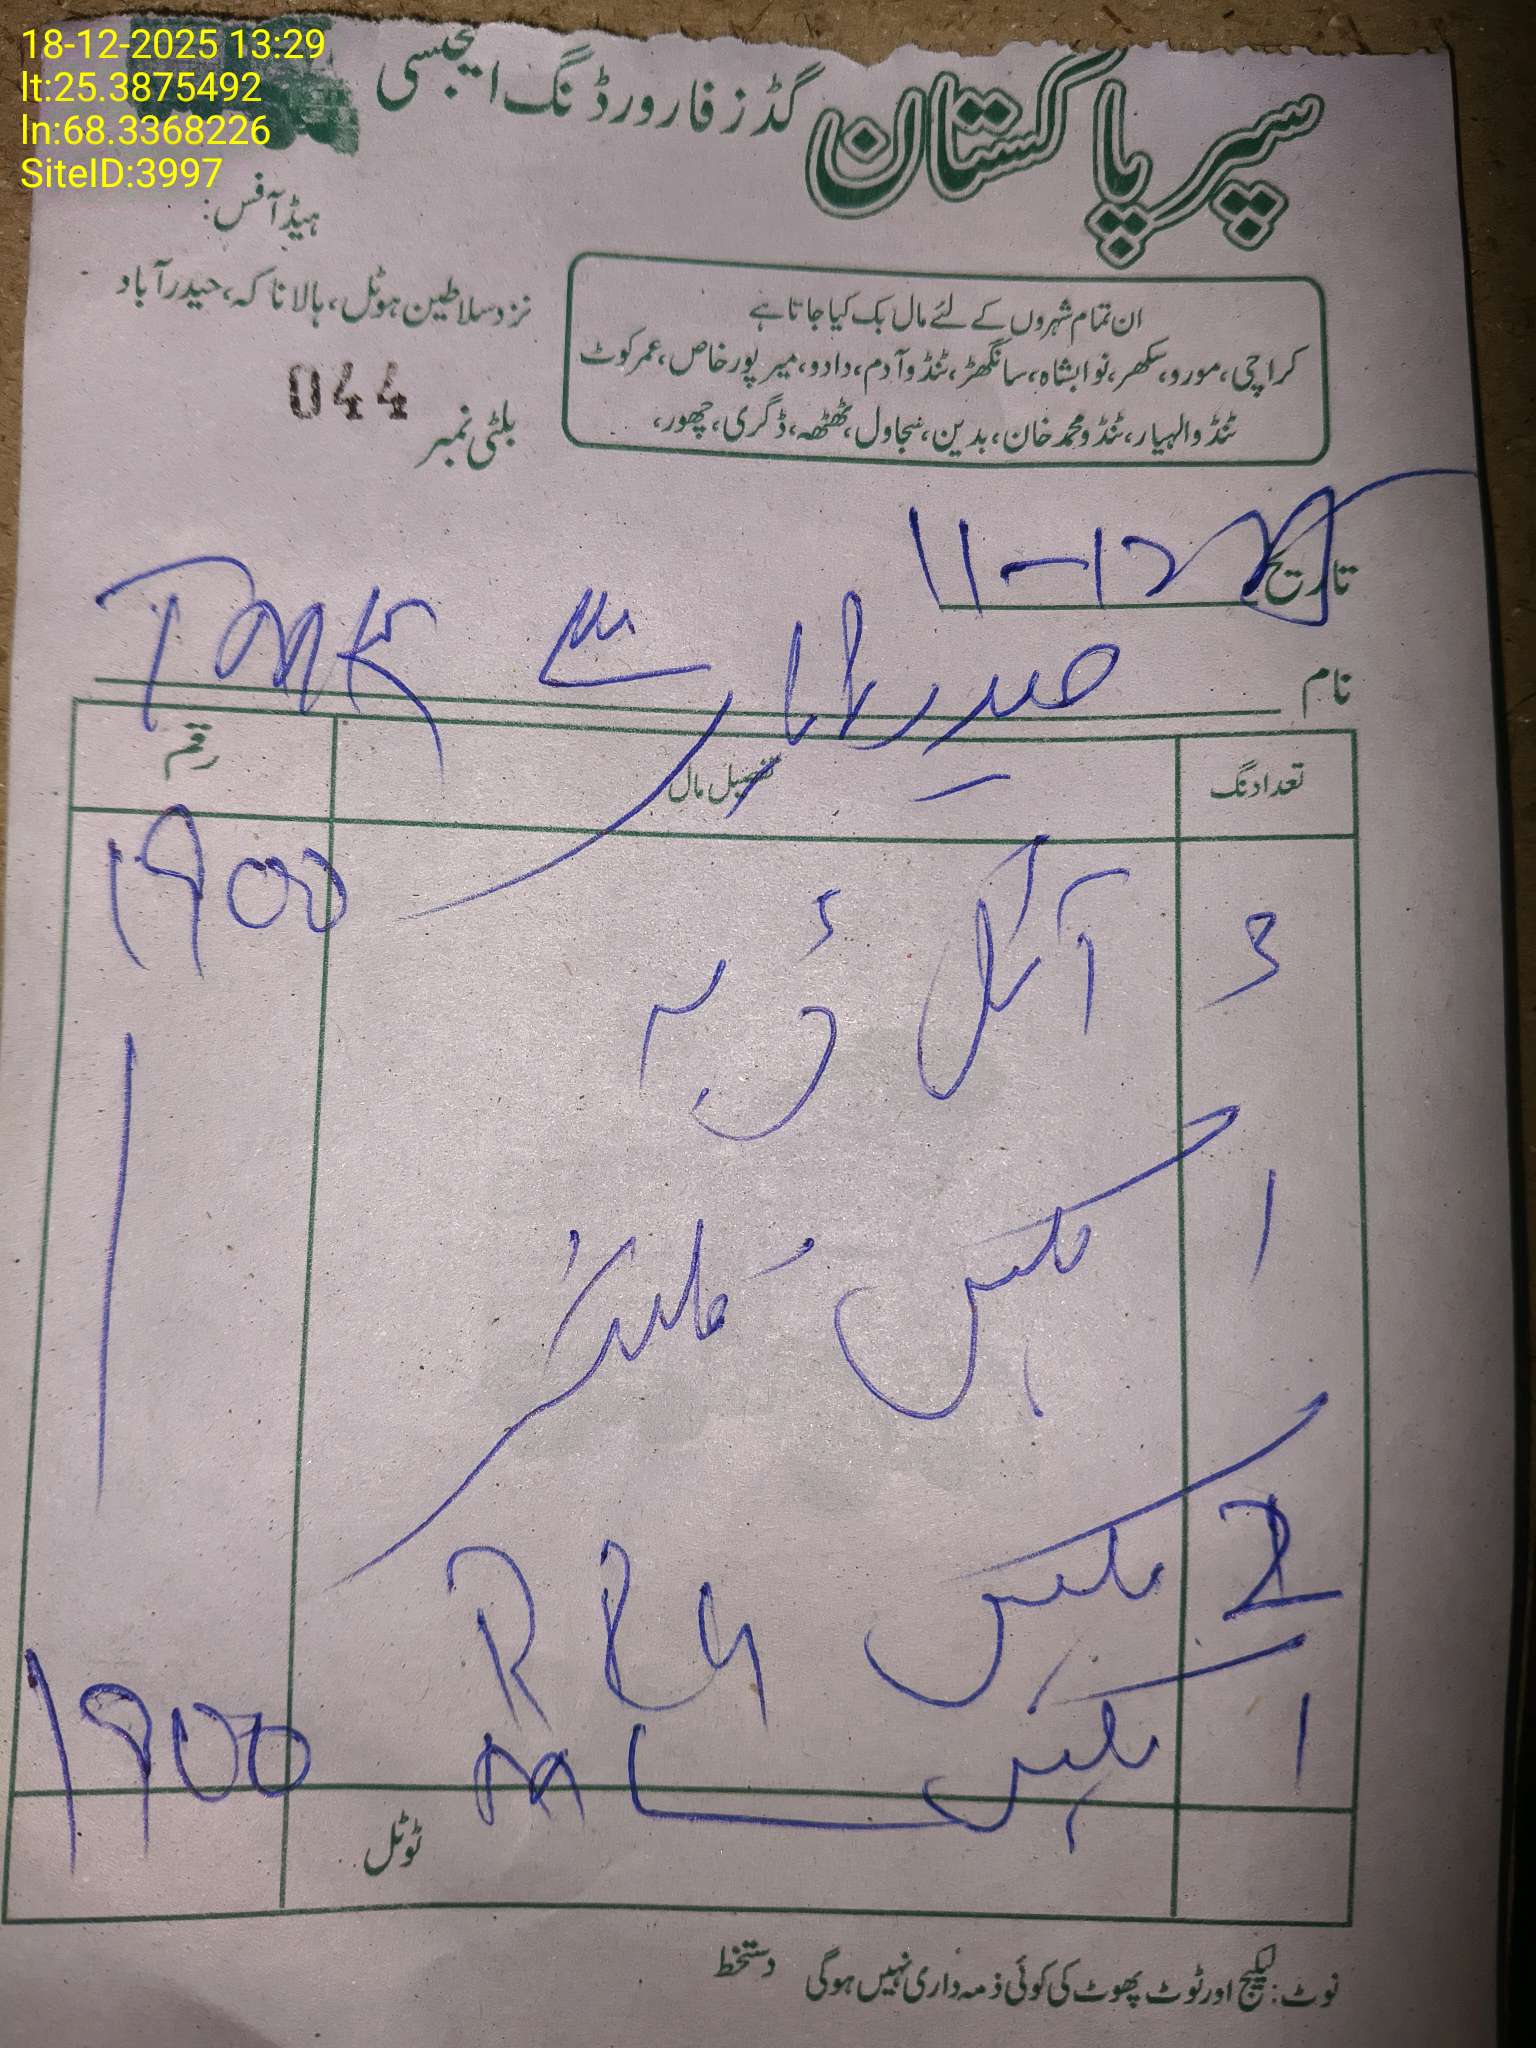 18-12-2025 13:29
lt:25.3875492
ln:68.3368226
SiteID:3997
سپر پاکستان گڈز فارورڈنگ ایجنسی
ہیڈ آفس:
نزد سلاطین ہوٹل، ہالا ناکہ، حیدرآباد
ان تمام شہروں کے لئے مال بک کیا جاتا ہے
کراچی، مورو، سکھر، نوابشاہ، سانگھڑ، ٹنڈو آدم، دادو، میرپورخاص، عمرکوٹ
ٹنڈوالہیار، ٹنڈو محمد خان، بدین، سجاول، ٹھٹھہ، ڈگری، چھور،
بلٹی نمبر 044
تاریخ 11-12
نام حیدرآباد سے
تعداد نگ تفصیل مال رقم
3 آئل 1900
1 بکس فلٹر
2 بکس
1 بکس
ٹوٹل 1900
نوٹ: لیکیج اور ٹوٹ پھوٹ کی کوئی ذمہ داری نہیں ہوگی دستخط